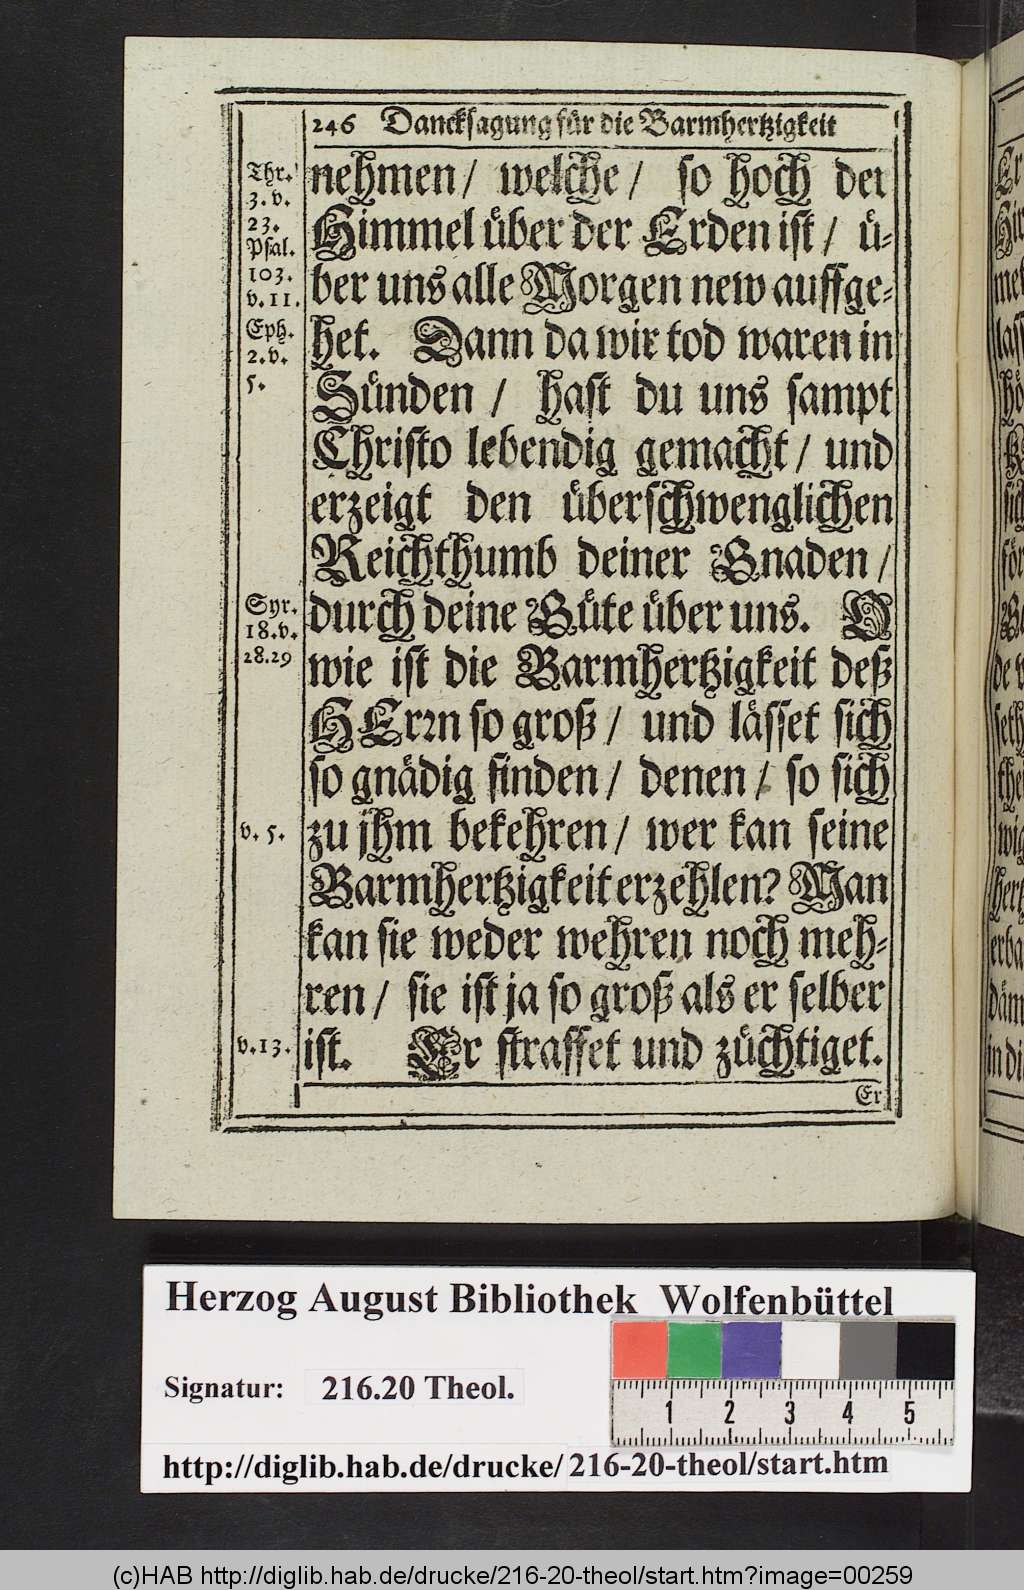 246 Dancksagung für die Barmhertzigkeit
Thr.
3. v.
23.
Psal.
103.
v. 11.
Eph.
2. v.
5.
Syr.
18. v.
28.29
v. 5.
v. 13.
nehmen/ welche/ so hoch der
Himmel über der Erden ist/ ü-
ber uns alle Morgen new auffge-
het. Dann da wir tod waren in
Sünden/ hast du uns sampt
Christo lebendig gemacht/ und
erzeigt den überschwenglichen
Reichthumb deiner Gnaden/
durch deine Güte über uns. O
wie ist die Barmhertzigkeit deß
HErrn so groß/ und lässet sich
so gnädig finden/ denen/ so sich
zu jhm bekehren/ wer kan seine
Barmhertzigkeit erzehlen? Man
kan sie weder wehren noch meh-
ren/ sie ist ja so groß als er selber
ist. Er straffet und züchtiget.
Er
Herzog August Bibliothek Wolfenbüttel
Signatur: 216.20 Theol.
1 2 3 4 5
http://diglib.hab.de/drucke/216-20-theol/start.htm
(c)HAB http://diglib.hab.de/drucke/216-20-theol/start.htm?image=00259